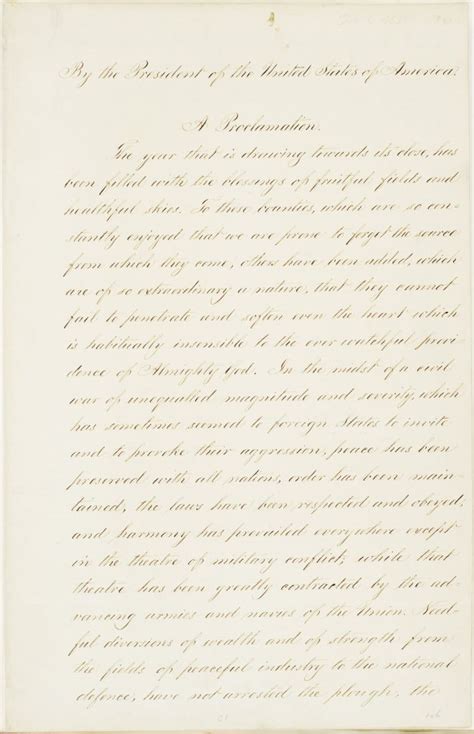 By the President of the United States of America.
A Proclamation.
The year that is drawing towards its close, has
been filled with the blessings of fruitful fields and
healthful skies. To these bounties, which are so con-
stantly enjoyed that we are prone to forget the source
from which they come, others have been added, which
are of so extraordinary a nature, that they cannot
fail to penetrate and soften even the heart which
is habitually insensible to the ever watchful provi-
dence of Almighty God. In the midst of a civil
war of unequalled magnitude and severity, which
has sometimes seemed to foreign States to invite
and to provoke their aggression, peace has been
preserved with all nations, order has been main-
tained, the laws have been respected and obeyed,
and harmony has prevailed everywhere except
in the theatre of military conflict; while that
theatre has been greatly contracted by the ad-
vancing armies and navies of the Union. Need-
ful diversions of wealth and of strength from
the fields of peaceful industry to the national
defence, have not arrested the plough, the